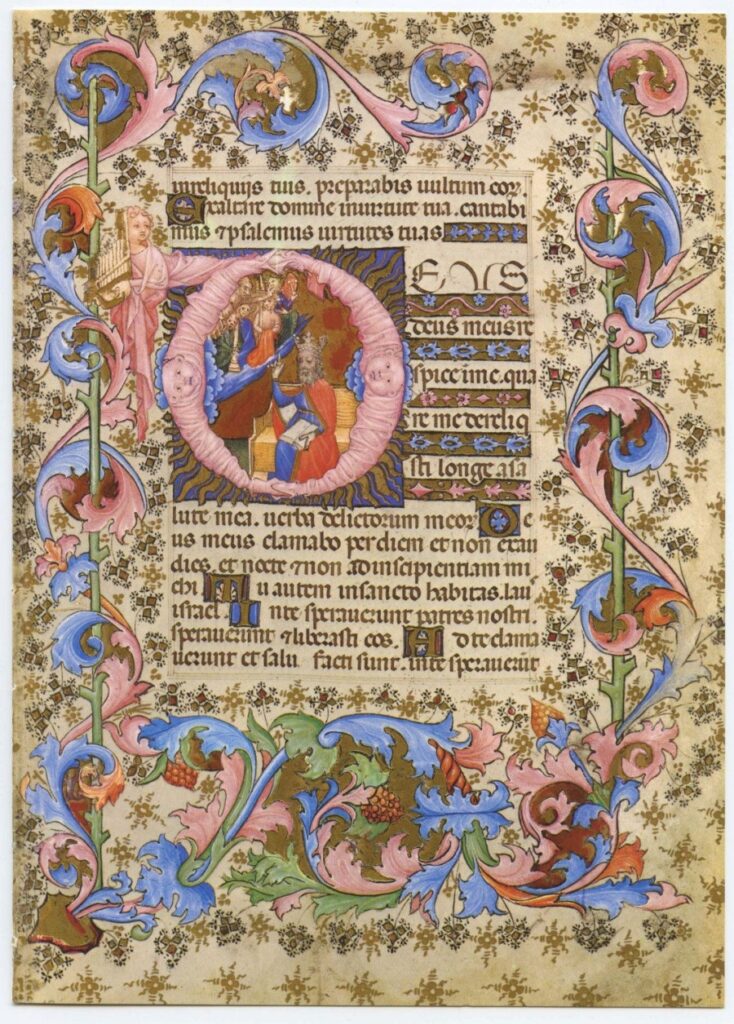 inreliquijs tuis. preparabis uultum eor
Exaltare domine inuirtute tua. cantabi
mus & psalemus uirtutes tuas
DEUS
deus meus re
spice ime. qua
re me dereliq
sti longe asa
lute mea. uerba delictorum meor De
us meus clamabo per diem et non exau
dies. et nocte & non ad insipientiam mi
chi Tu autem insancto habitas. lau
israel. Inte sperauerunt patres nostri.
sperauerunt & liberasti eos. Ad te clama
uerunt et salu facti sunt. inte sperauerunt